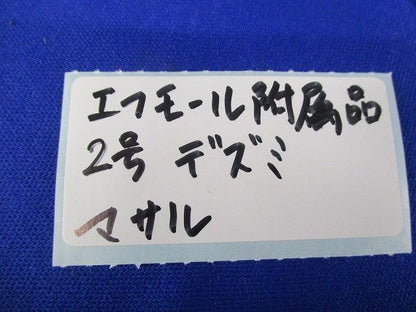 エフモール附属品
2号 デズミ
マサル